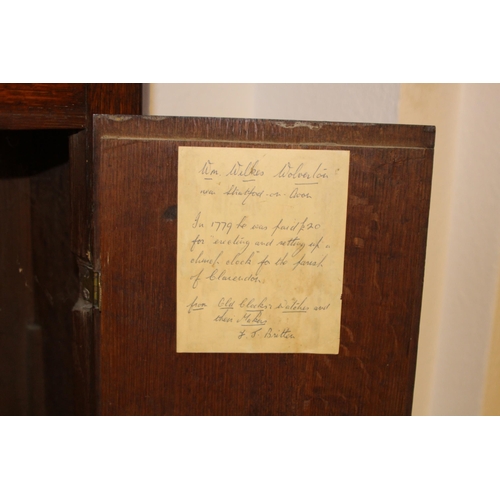 Wm. Wilkes Wolverton
near Stratford-on-Avon
In 1779 he was paid £20
for "erecting and setting up a
church clock" for the parish
of Claverdon.
from Old Clocks & Watches and
their Makers
F J Britten